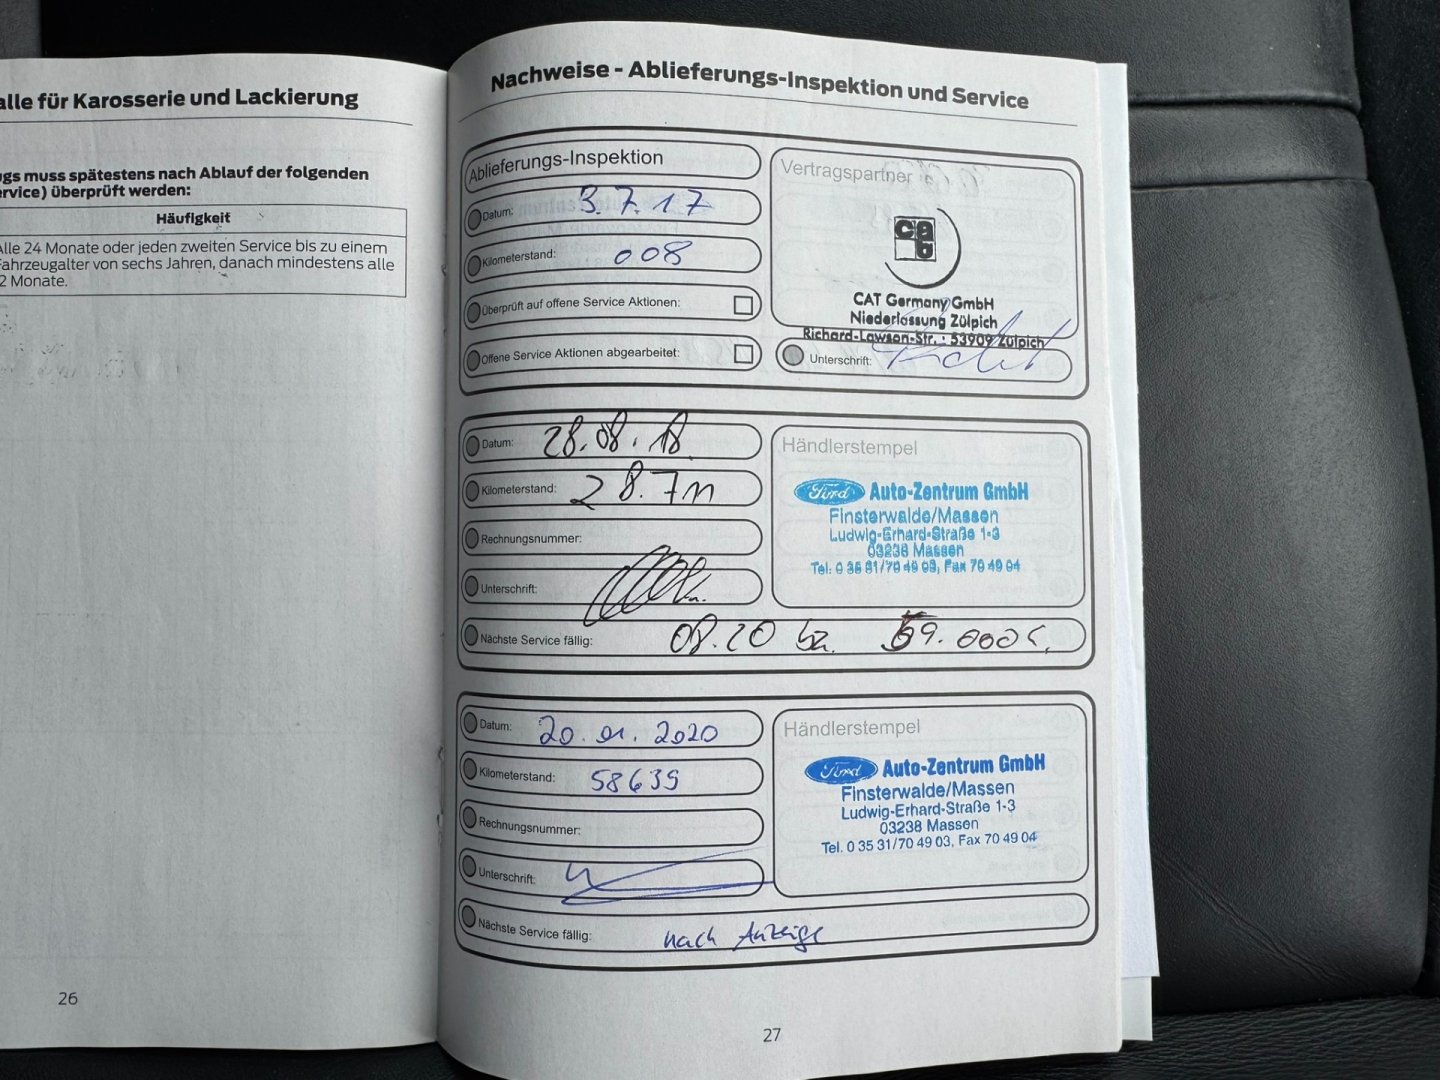 alle für Karosserie und Lackierung
ugs muss spätestens nach Ablauf der folgenden
ervice) überprüft werden:
Häufigkeit
Alle 24 Monate oder jeden zweiten Service bis zu einem
Fahrzeugalter von sechs Jahren, danach mindestens alle
12 Monate.
26
Nachweise - Ablieferungs-Inspektion und Service
Ablieferungs-Inspektion
Datum: 3.7.17
Kilometerstand: 008
Überprüft auf offene Service Aktionen:
Offene Service Aktionen abgearbeitet:
Vertragspartner
cab
CAT Germany GmbH
Niederlassung Zülpich
Richard-Lawson-Str. · 53909 Zülpich
Unterschrift:
Datum: 28.08.18
Kilometerstand: 28.711
Rechnungsnummer:
Unterschrift:
Nächste Service fällig: 08.20 bz. 59.000
Händlerstempel
Ford Auto-Zentrum GmbH
Finsterwalde/Massen
Ludwig-Erhard-Straße 1-3
03238 Massen
Tel. 0 35 31/70 49 03, Fax 70 49 04
Datum: 20.01.2020
Kilometerstand: 58639
Rechnungsnummer:
Unterschrift:
Nächste Service fällig: nach Anzeige
Händlerstempel
Ford Auto-Zentrum GmbH
Finsterwalde/Massen
Ludwig-Erhard-Straße 1-3
03238 Massen
Tel. 0 35 31/70 49 03, Fax 70 49 04
27